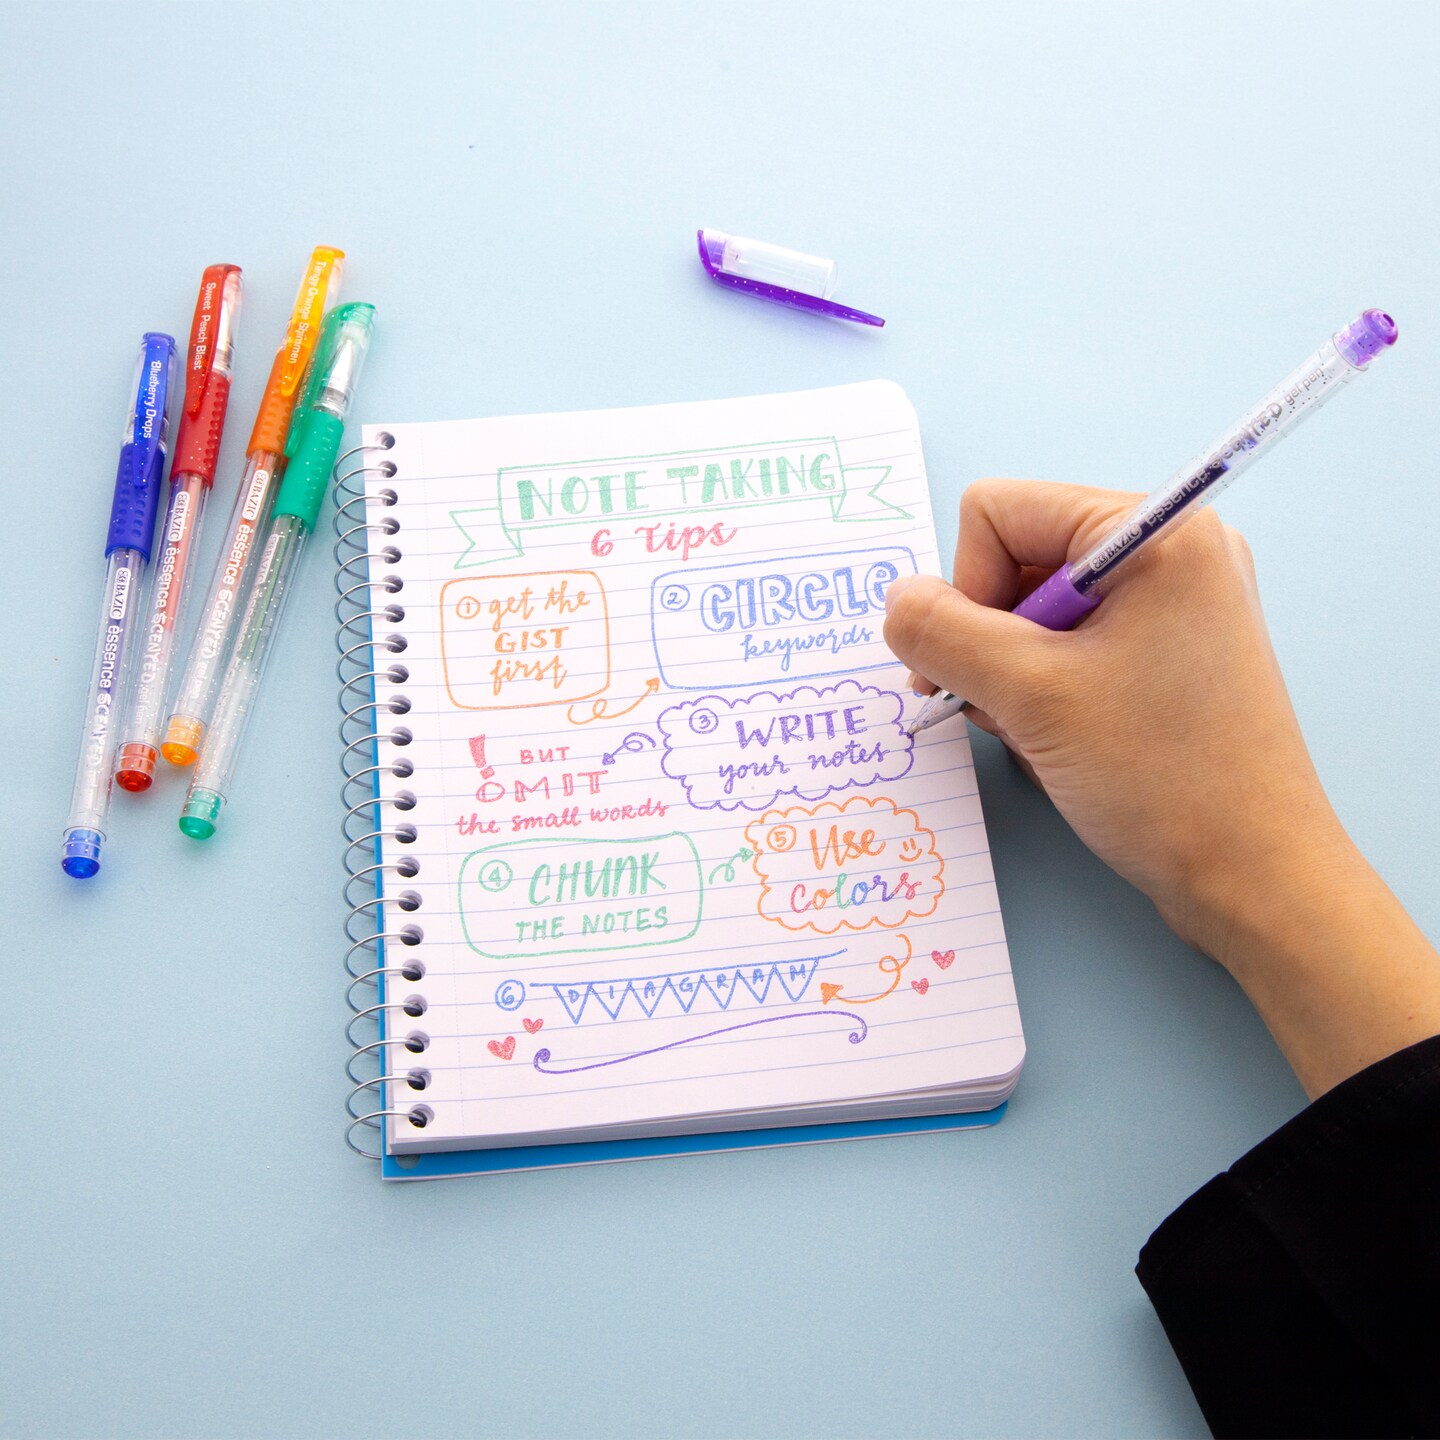 NOTE TAKING
6 Tips
① get the
GIST
first
② CIRCLE
keywords
③ WRITE
your notes
! BUT
OMIT
the small words
④ CHUNK
THE NOTES
⑤ Use
colors
⑥ DIAGRAM
Blueberry Drops
BAZIC essence SCENTED
Sweet Peach Blast
BAZIC essence SCENTED gel pen
Tangy Orange Shimmer
BAZIC essence SCENTED gel pen
BAZIC essence gel pen